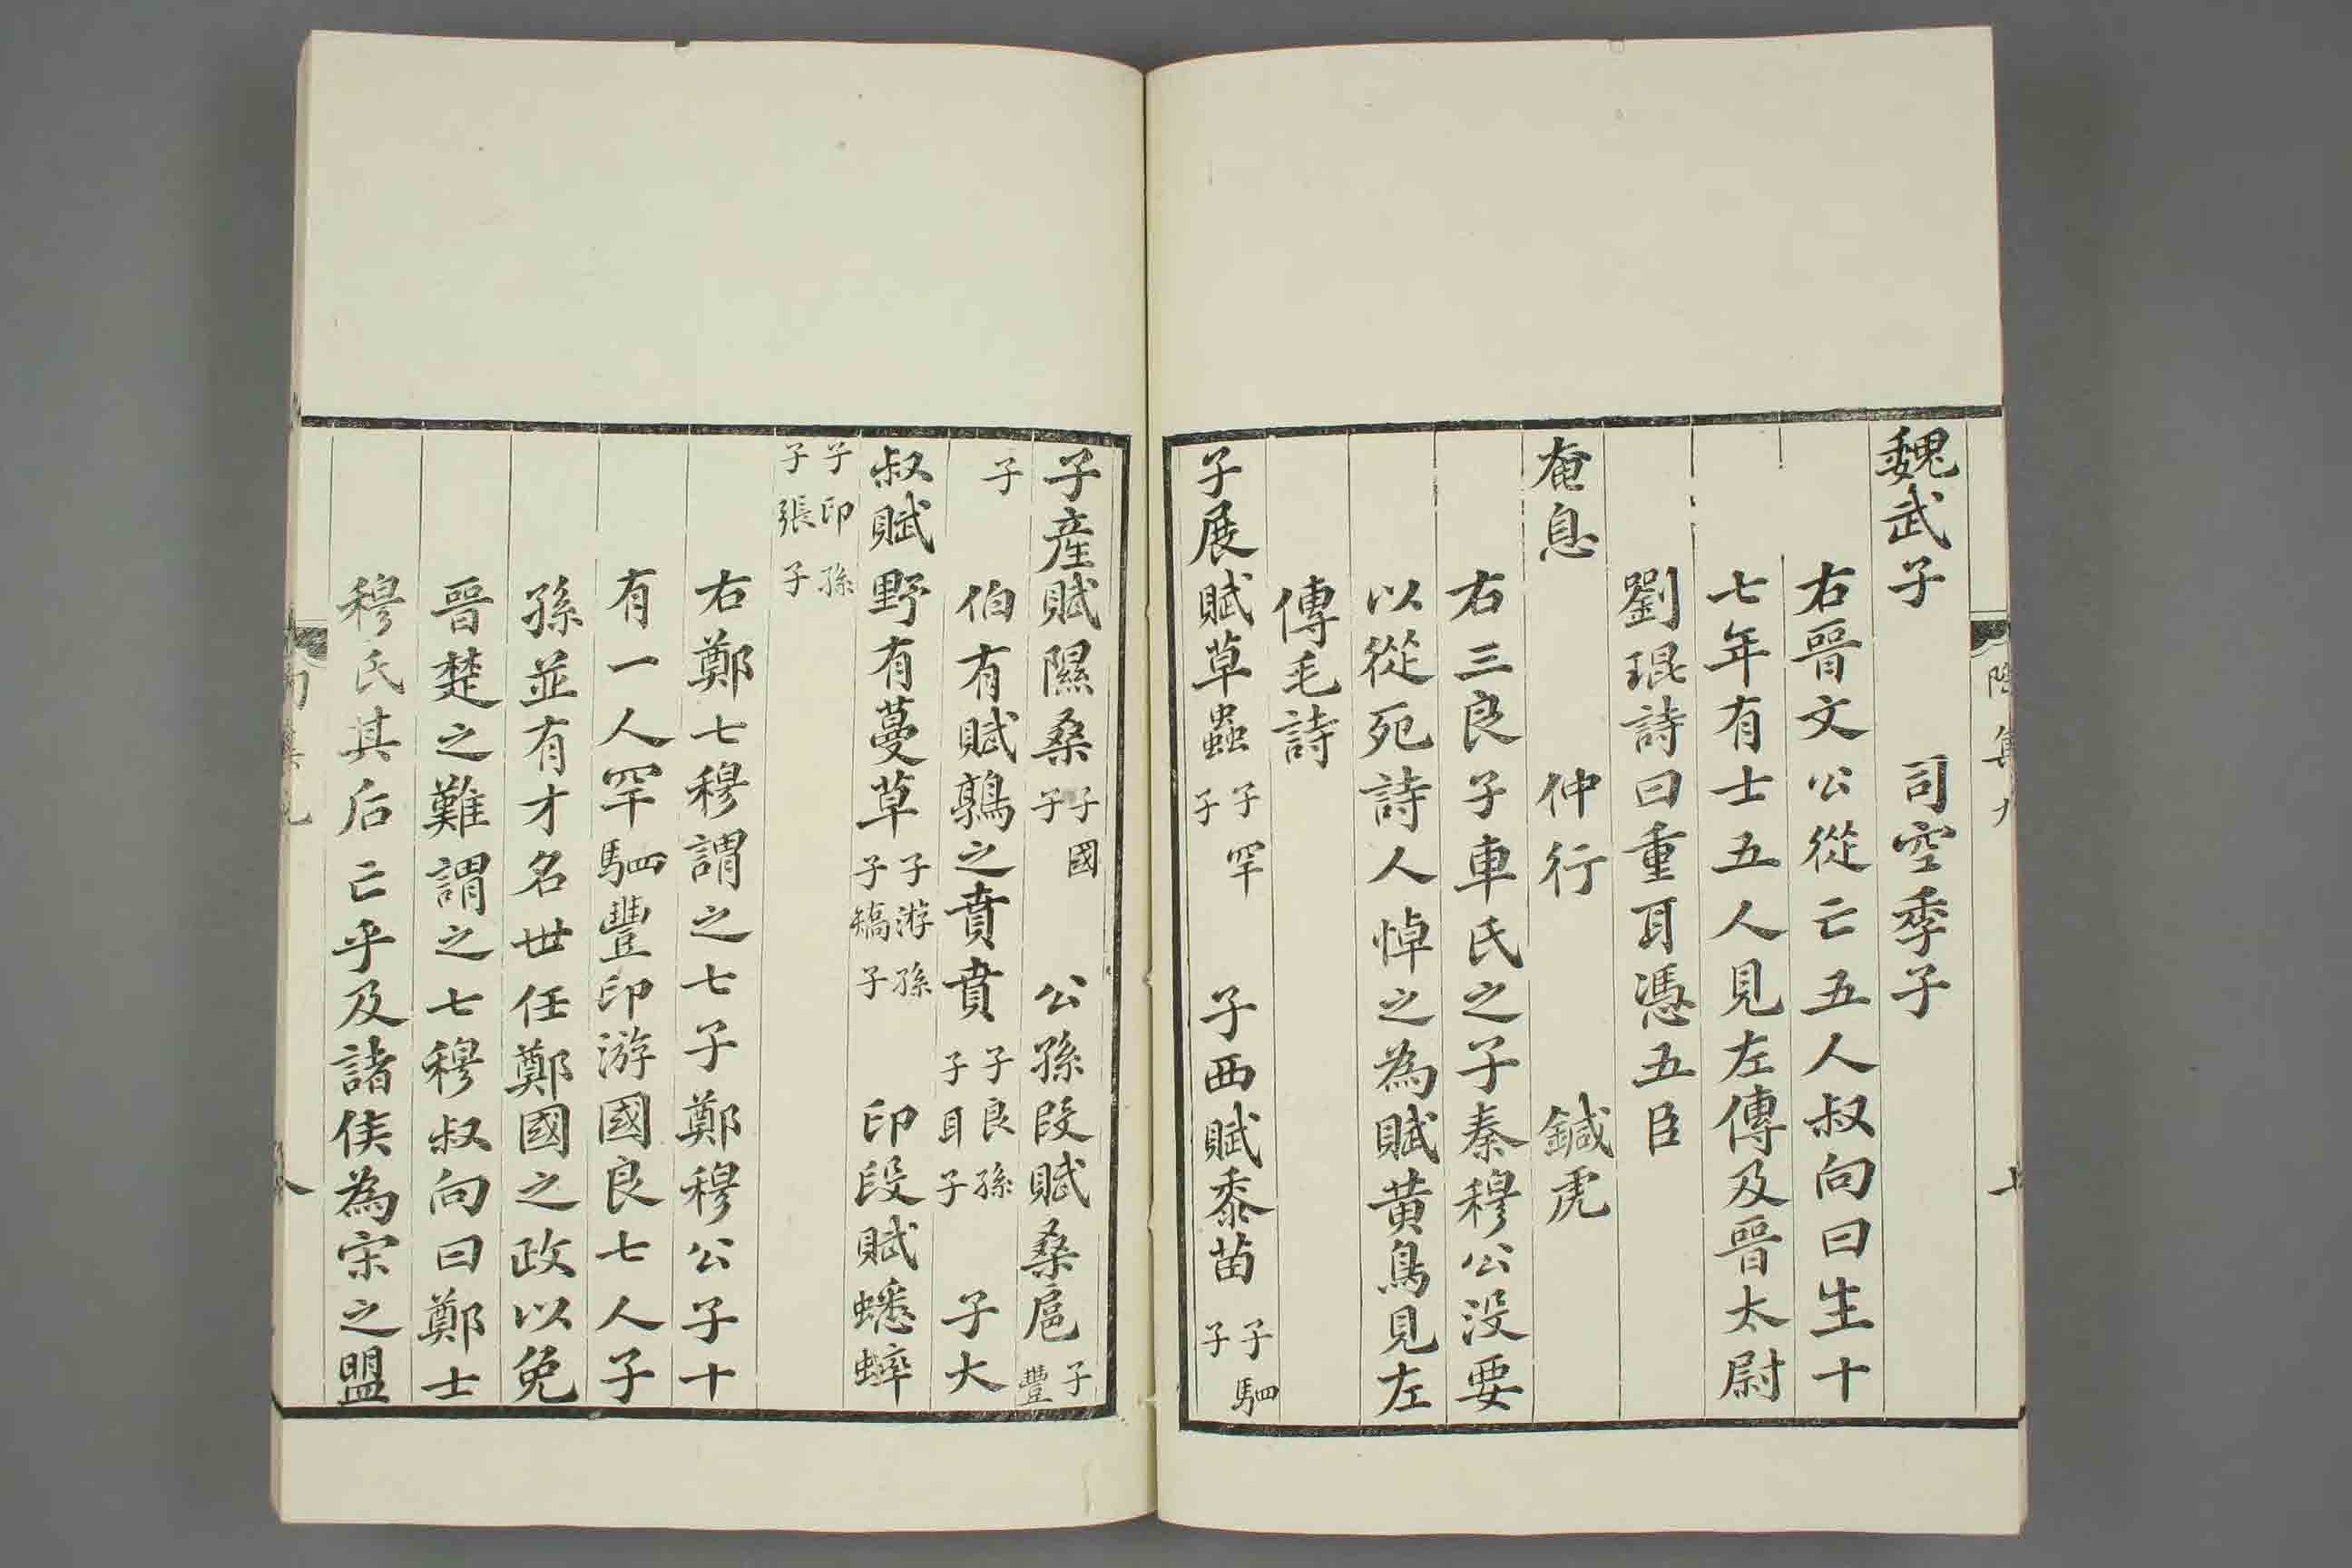 魏武子　司空季子
右晉文公從亡五人叔向曰生十
七年有士五人見左傳及晉太尉
劉琨詩曰重耳憑五臣
奄息　仲行　鍼虎
右三良子車氏之子秦穆公沒要
以從死詩人悼之為賦黃鳥見左
傳毛詩
子展賦草蟲子罕子　子西賦黍苗子駟子
子產賦隰桑子國子　公孫段賦桑扈子豐
子　伯有賦鶉之賁賁子良孫子耳子　子大
叔賦野有蔓草子游孫子矯子　印段賦蟋蟀
子印孫子張子
右鄭七穆謂之七子鄭穆公子十
有一人罕駟豐印游國良七人子
孫並有才名世任鄭國之政以免
晉楚之難謂之七穆叔向曰鄭士
穆氏其后亡乎及諸侯為宋之盟